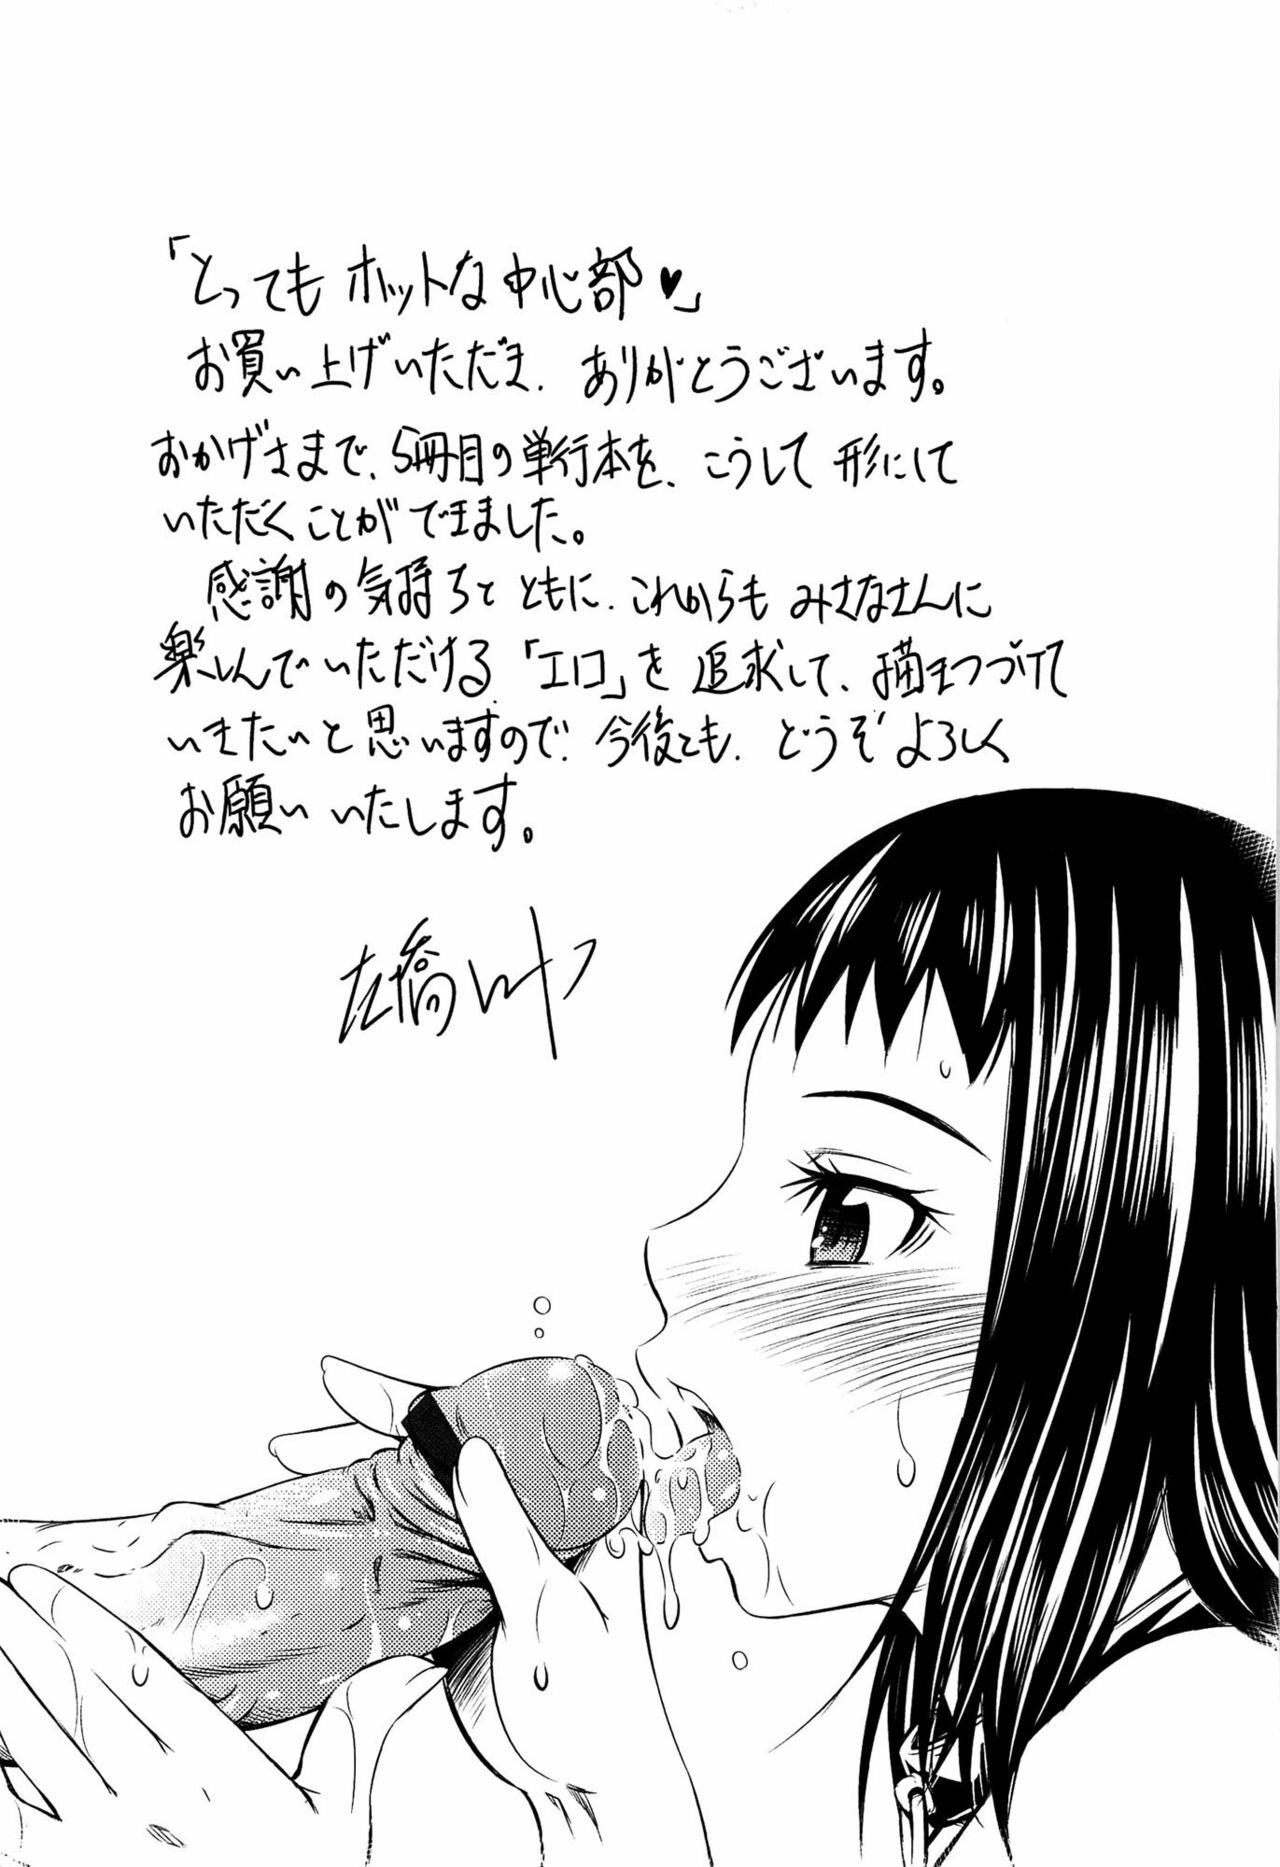 「とっても ホットな 中心部♥」
お買い上げいただき、ありがとうございます。
おかげさまで、5冊目の単行本を、こうして 形にして
いただくことができました。
感謝の気持ちと ともに、これからも みなさんに
楽しんでいただける「エロ」を 追求して、描きつづけて
いきたいと思いますので、今後とも、どうぞ よろしく
お願い いたします。